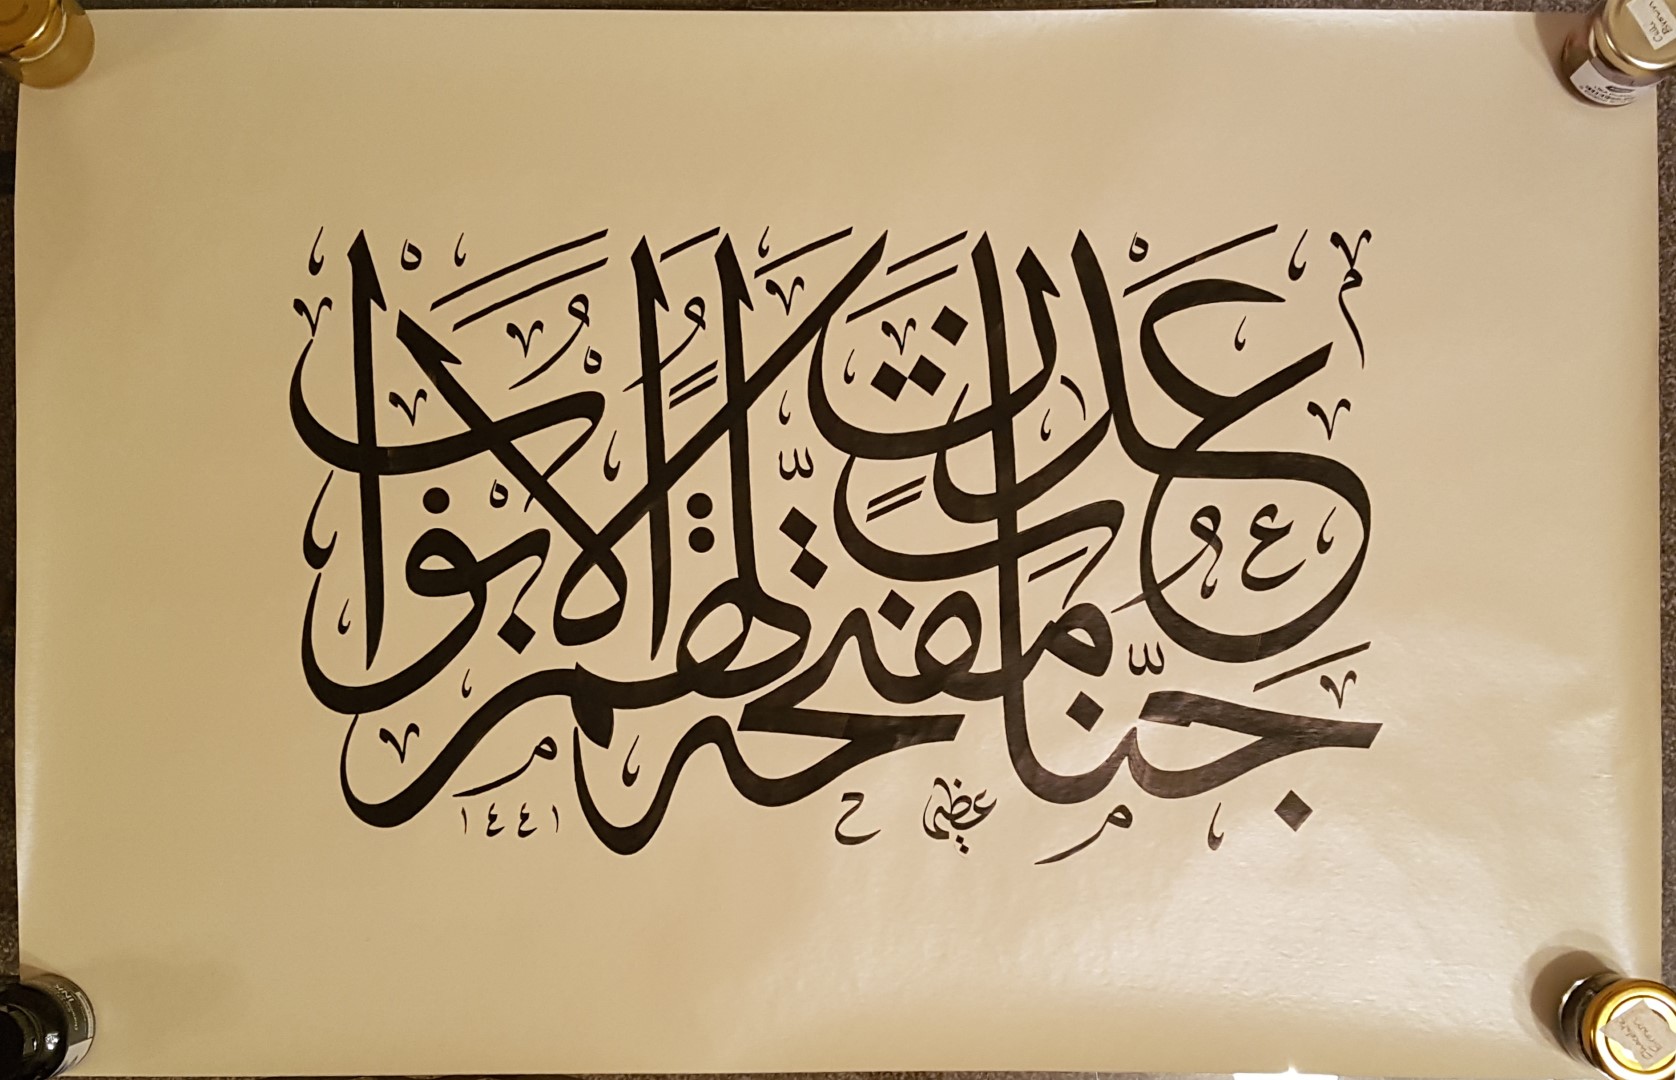 جَنَّاتِ عَدْنٍ مُفَتَّحَةً لَهُمُ الْأَبْوَابُ
عظيم
١٤٤١